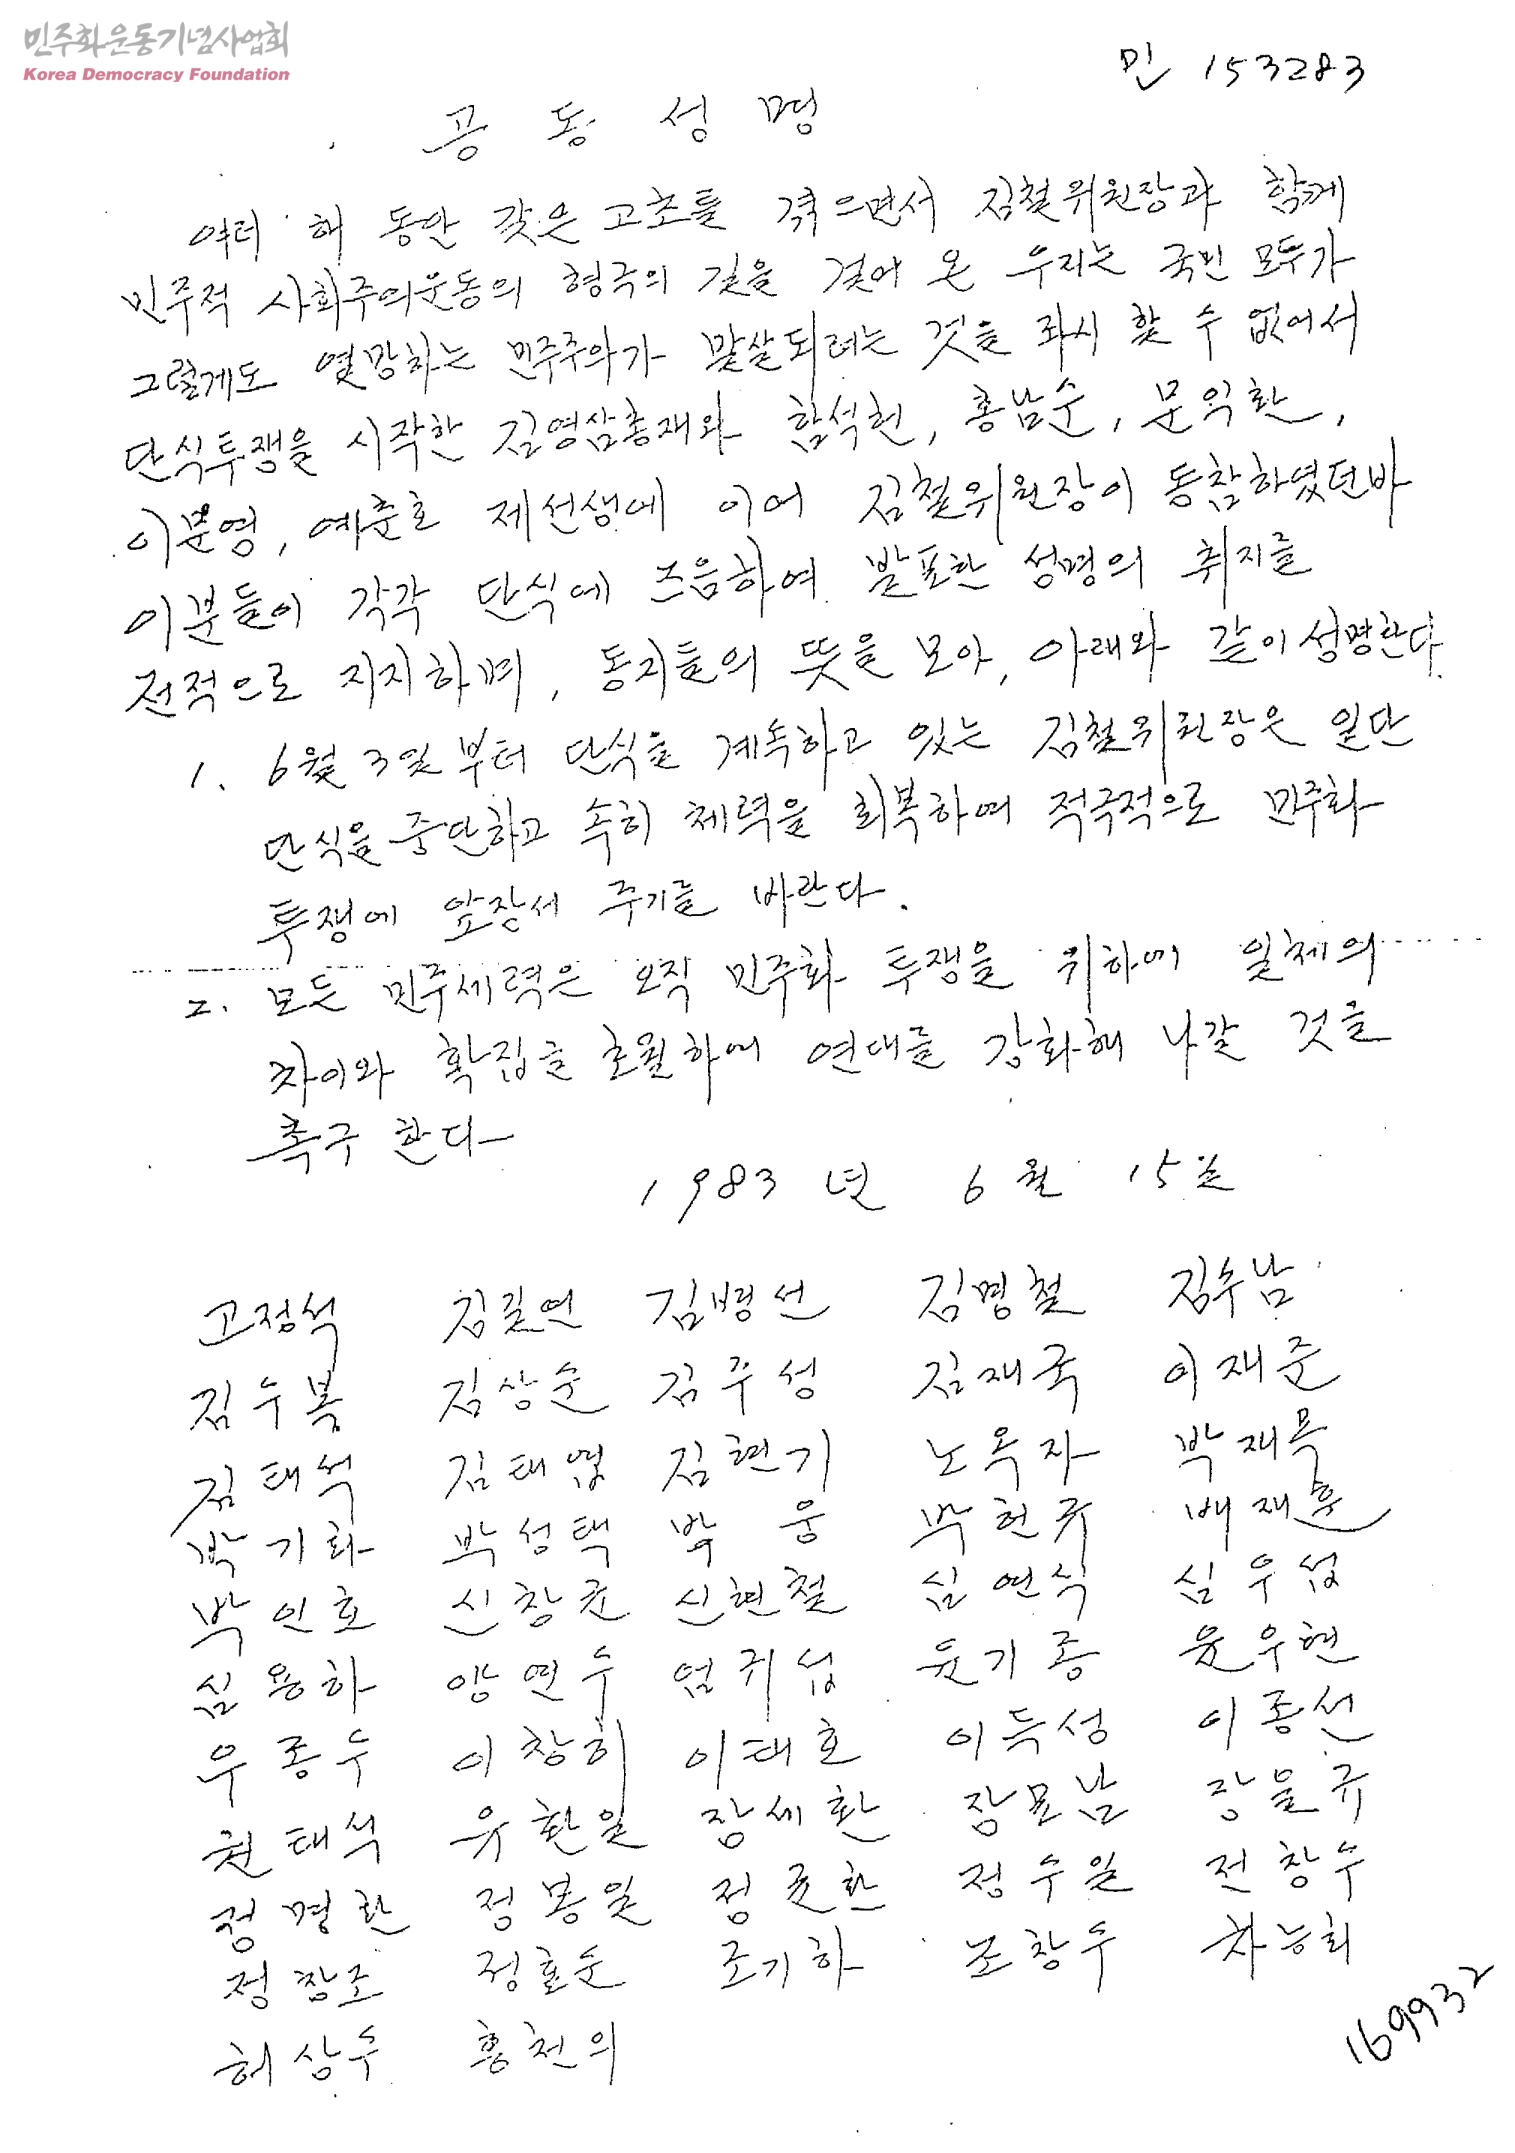 민주화운동기념사업회
Korea Democracy Foundation
민 153283
공 동 성 명
여러 해 동안 갖은 고초를 겪으면서 김철위원장과 함께
민주적 사회주의운동의 형극의 길을 걸어 온 우리는 국민 모두가
그렇게도 열망하는 민주주의가 말살되려는 것을 좌시 할 수 없어서
단식투쟁을 시작한 김영삼총재와 함석헌, 홍남순, 문익환,
이문영, 예춘호 제선생에 이어 김철위원장이 동참하였던바
이분들이 각각 단식에 즈음하여 발표한 성명의 취지를
전적으로 지지하며, 동지들의 뜻을 모아, 아래와 같이 성명한다.
1. 6월 3일 부터 단식을 계속하고 있는 김철위원장은 일단
단식을 중단하고 속히 체력을 회복하여 적극적으로 민주화
투쟁에 앞장서 주기를 바란다.
2. 모든 민주세력은 오직 민주화 투쟁을 위하여 일체의
차이와 확집을 초월하여 연대를 강화해 나갈 것을
촉구 한다
1983 년 6 월 15일
고정석 김길연 김병선 김명철 김수남
김수복 김상순 김주성 김재국 이재준
김태석 김태엽 김현기 노옥자 박재목
박기화 박성택 박 웅 박헌규 배재훈
박인호 신창균 신현철 심연식 심우섭
심용하 양연수 엄귀섭 윤기종 윤우현
우종수 이창희 이태호 이득성 이종선
권태석 유환일 장세환 장묘남 장을규
정명환 정봉일 정균환 정수일 전창수
정창조 정효순 조기하 조창수 차능희
허상수 홍천의
169932